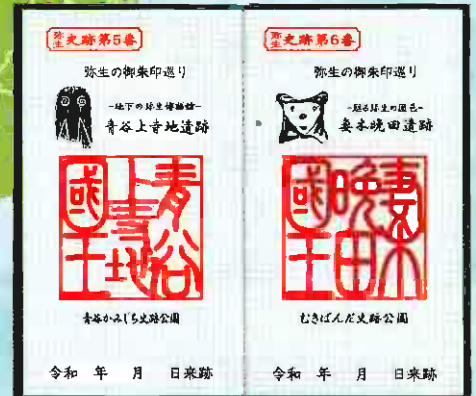 弥生史跡第5番
弥生の御朱印巡り
-地下の弥生博物館-
青谷上寺地遺跡
青谷上寺地
國王
青谷かみじち史跡公園
令和 年 月 日来跡
弥生史跡第6番
弥生の御朱印巡り
-甦る弥生の國邑-
妻木晩田遺跡
妻木晩田
國王
むきばんだ史跡公園
令和 年 月 日来跡